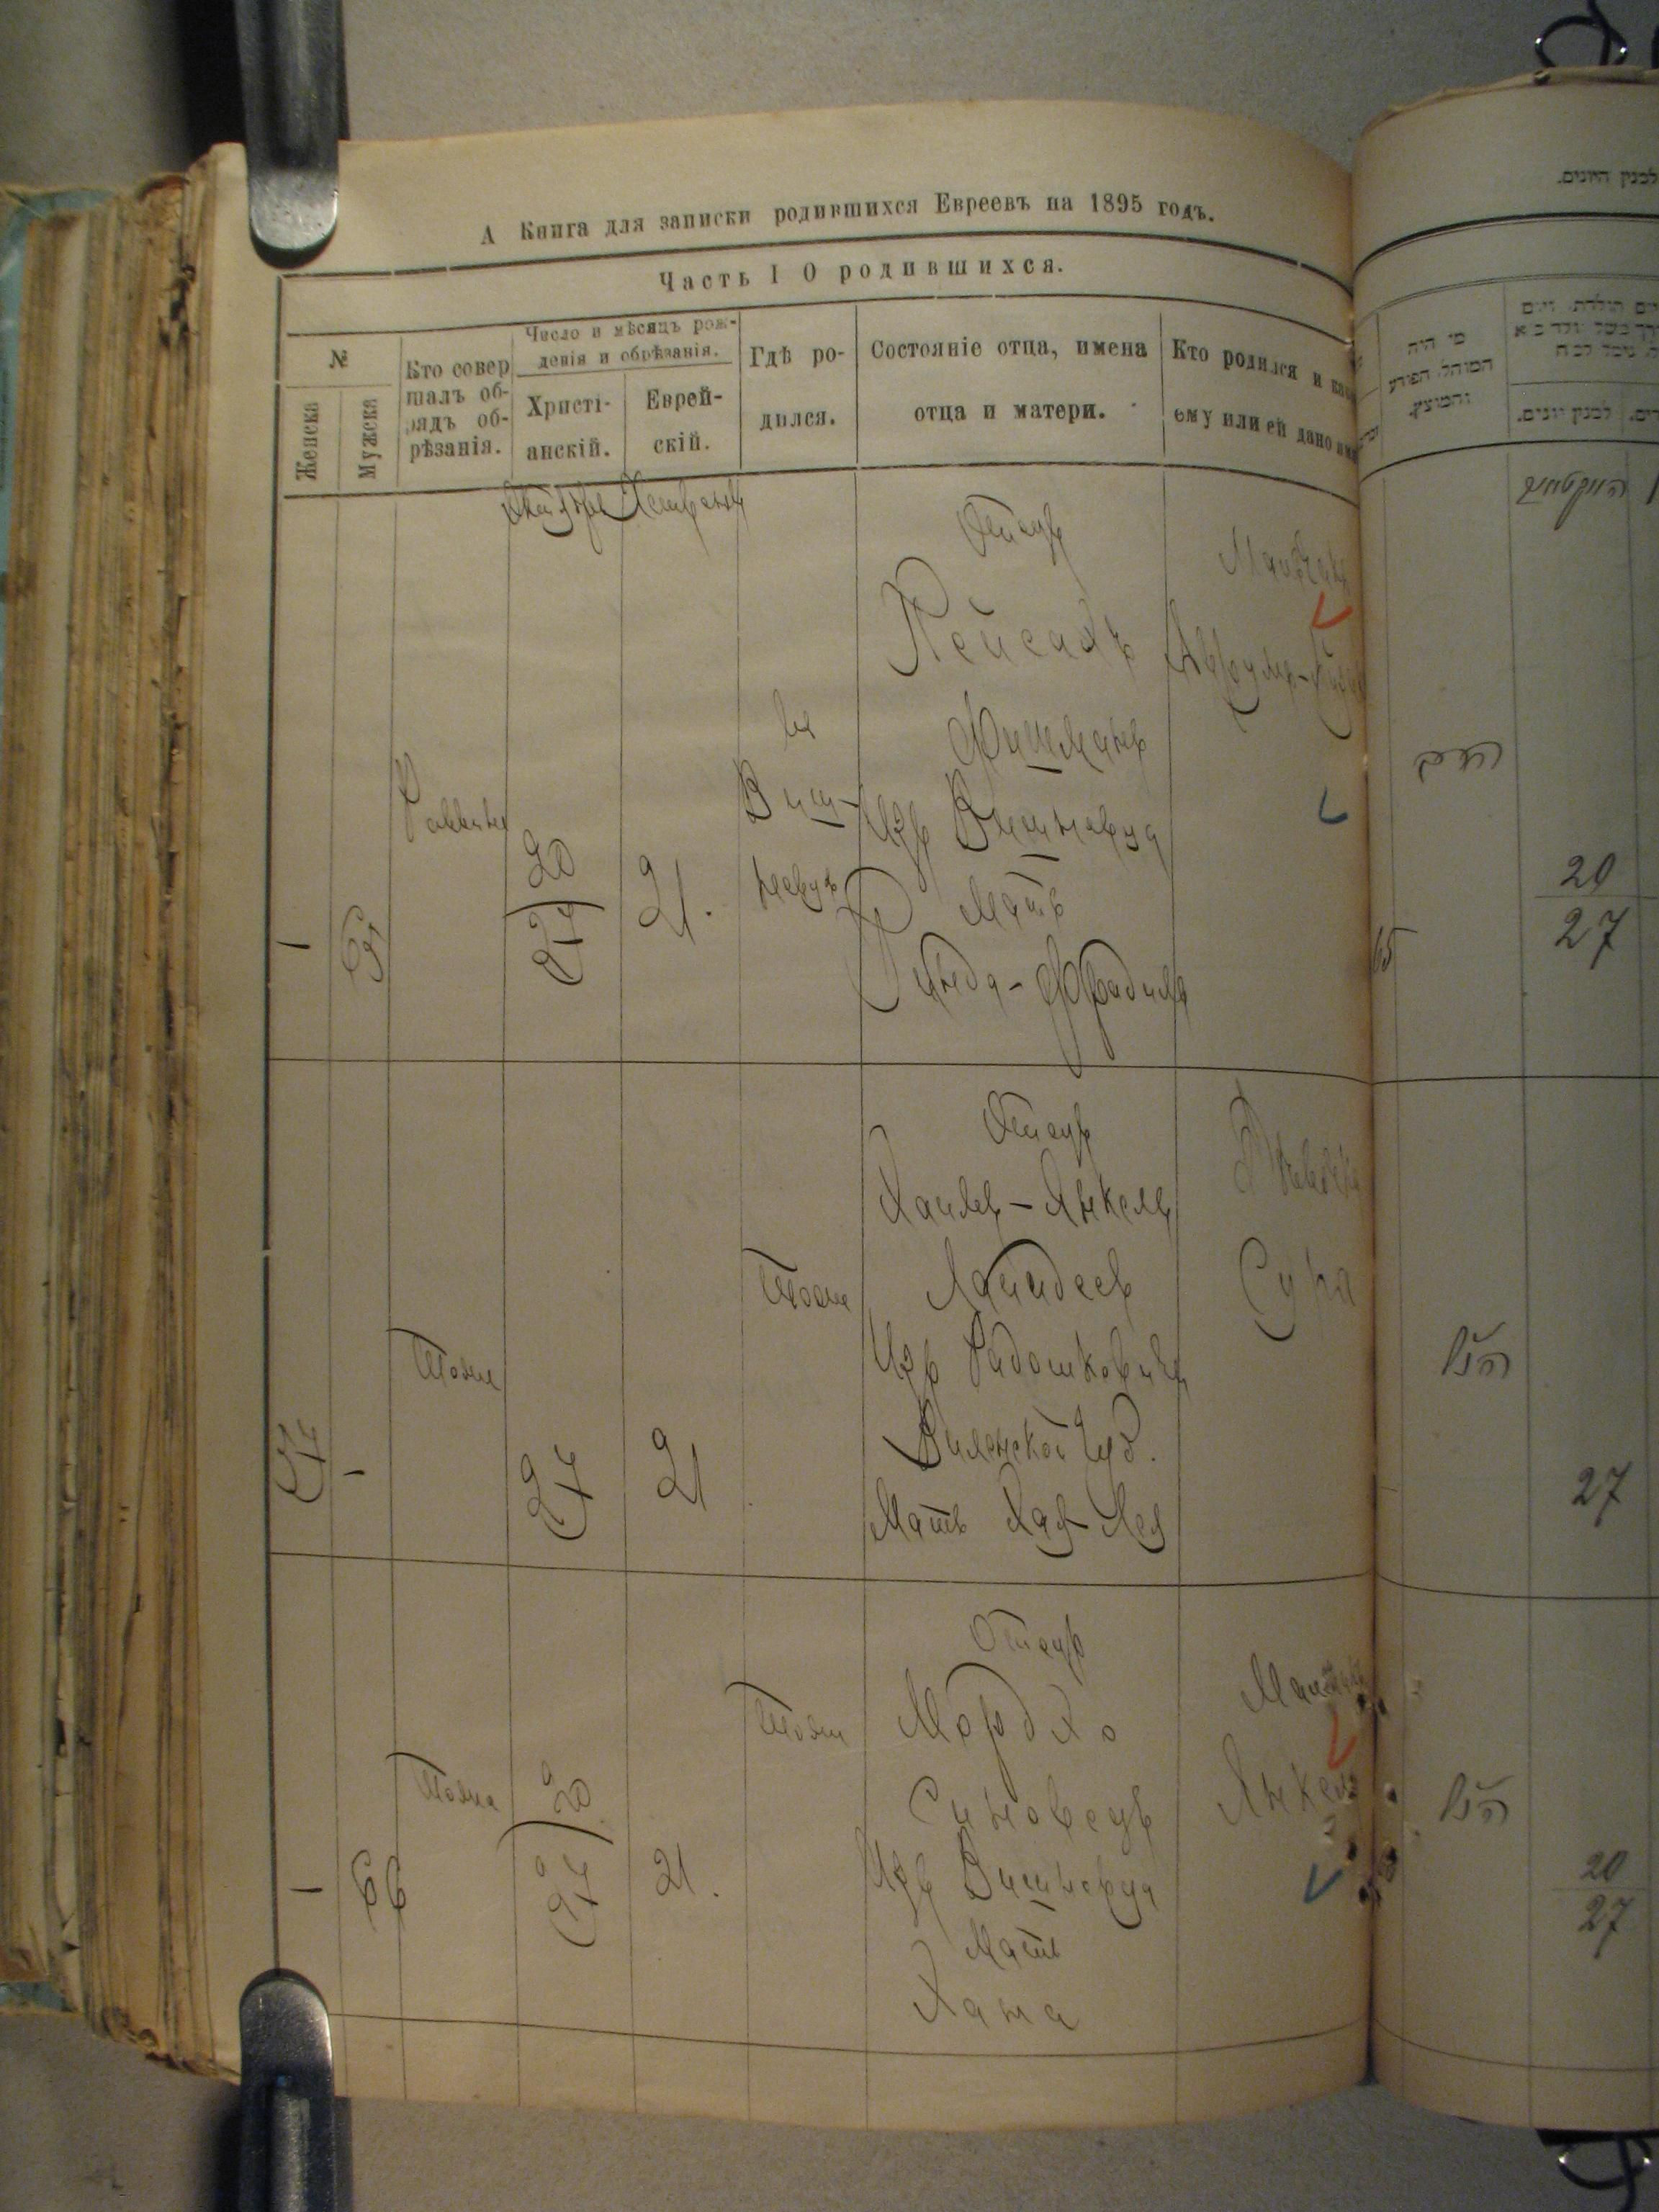 А Книга для записки родившихся Евреевъ на 1895 годъ.
Часть I О родившихся.
№
Женска
Мужска
Кто совер
шалъ об-
рядъ об-
рѣзанія.
Число и мѣсяцъ рож-
денія и обрѣзанія.
Христі-
анскій.
Еврей-
скій.
Гдѣ ро-
дился.
Состояніе отца, имена
отца и матери.
Кто родился и как
ему или ей дано имя
Октября
65
Раввинъ
20
27
21.
въ
Виш-
невцѣ
Отецъ
Пейсахъ
Фишманъ
Изъ Вишневца
Мать
Фрадиля
Мальчикъ
Аврумъ-
27
Тоже
27
21
Тоже
Отецъ
Хаимъ-Янкель
Лапидесъ
Изъ Радошковичъ
Виленской Губ.
Мать Хая-Лея
Сура
66
Тоже
20
27
21.
Тоже
Отецъ
Мордхо
Синовецъ
Изъ Вишневца
Мать
Хана
Мальчикъ
Янкель
לבנין היונים.
מי היה
המוהל, הפורע
והמוצץ.
65
20
27
הנ"ל
27
הנ"ל
20
27